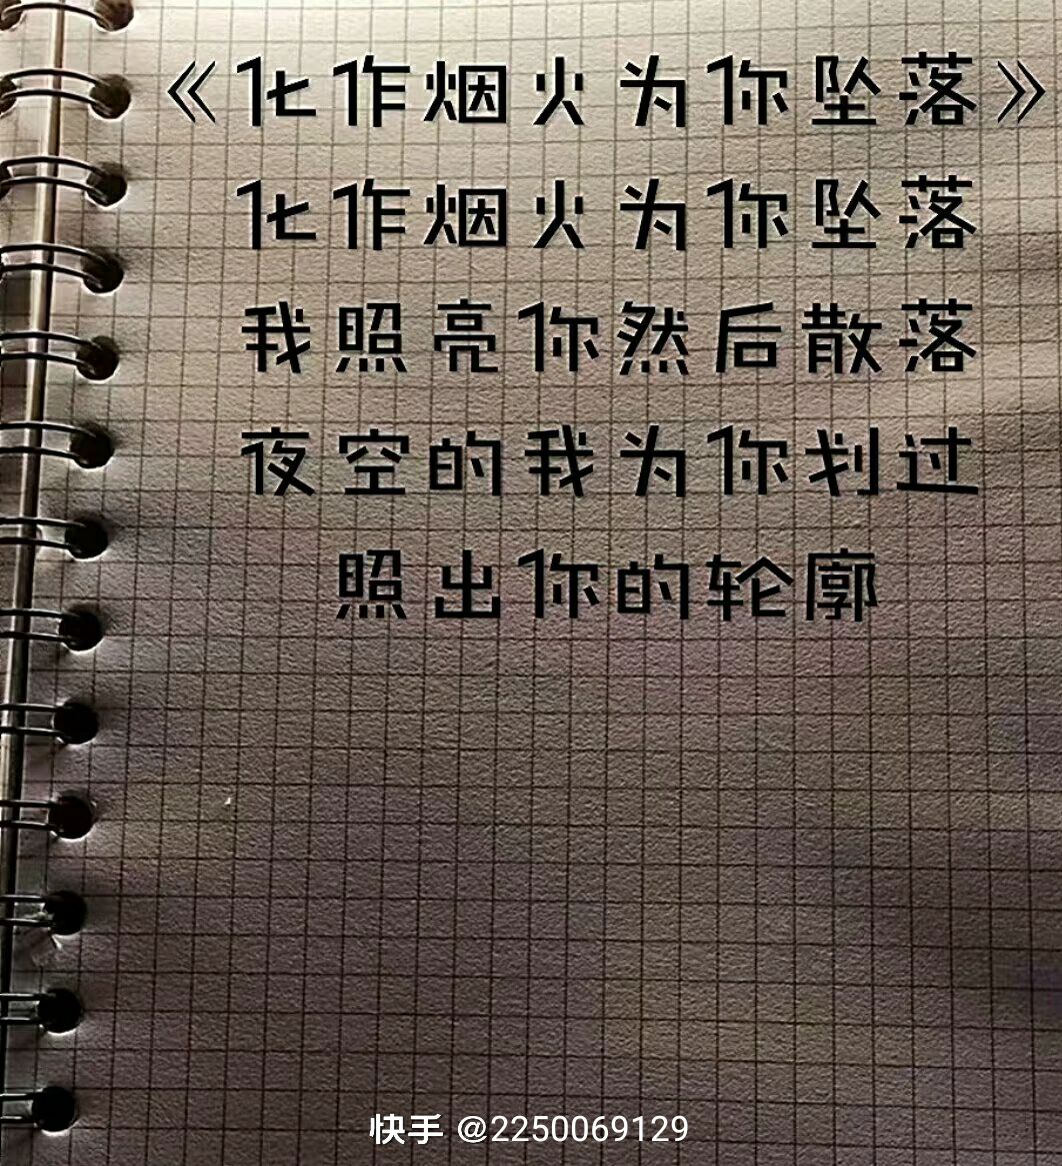 《化作烟火为你坠落》
化作烟火为你坠落
我照亮你然后散落
夜空的我为你划过
照出你的轮廓
快手 @2250069129